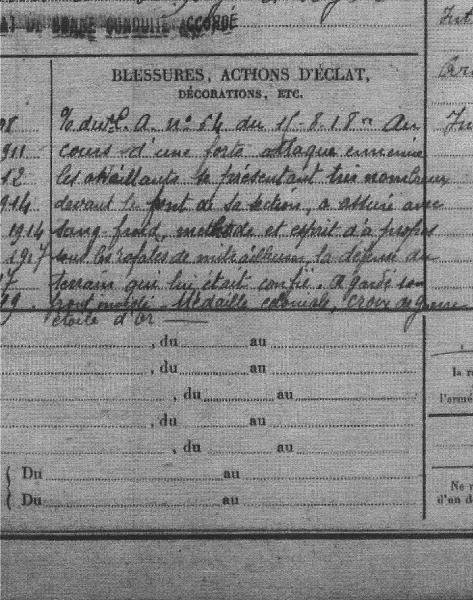 DE BONNE CONDUITE ACCORDÉ
BLESSURES, ACTIONS D'ÉCLAT,
DÉCORATIONS, ETC.
C. A. nº 54 du 15-8-18 "Au
cours d'une forte attaque ennemie
les assaillants se présentant très nombreux
devant le front de sa section, a assuré avec
1914 sang-froid, méthode et esprit d'à propos
1917 sous les rafales de mitrailleuses la défense du
terrain qui lui était confié. A gardé son
front inviolé. Médaille coloniale, croix de guerre
étoile d'or
, du au
, du au
, du au
, du au
, du au
Du au
Du au
la r
l'armé
Ne r
d'un d